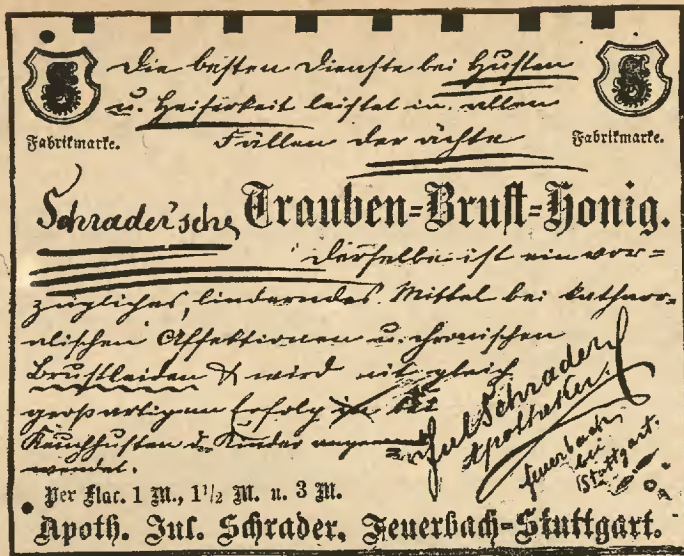 Die besten Dienste bei Husten
u. Heiserkeit leistet in allen
Fabrikmarke. Fällen der ächte Fabrikmarke.
Schrader'sche Trauben-Brust-Honig.
Derselbe ist ein vor-
zügliches, linderndes Mittel bei kathar-
ralischen Affektionen u. chronischen
Brustleiden & wird mit gleich
großartigem Erfolg in bei
Keuchhusten d. Kinder ange-
wendet.
Jul Schrader
Apotheker.
Feuerbach
bei
Stuttgart.
Per Flac. 1 M., 1½ M. u. 3 M.
Apoth. Jul. Schrader, Feuerbach-Stuttgart.